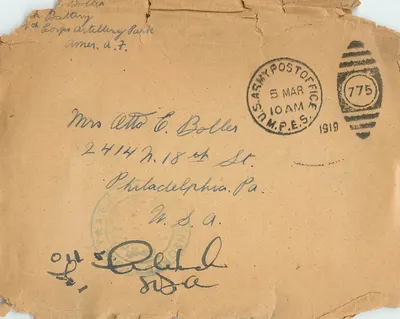 Boller
Battery
Corps Artillery Park
Amer. A. F.
U.S. ARMY POST OFFICE
5 MAR
10 AM
1919
M.P.E.S.
775
Mrs Otto C. Boller
2414 N. 18th St.
Philadelphia. Pa.
U. S. A.